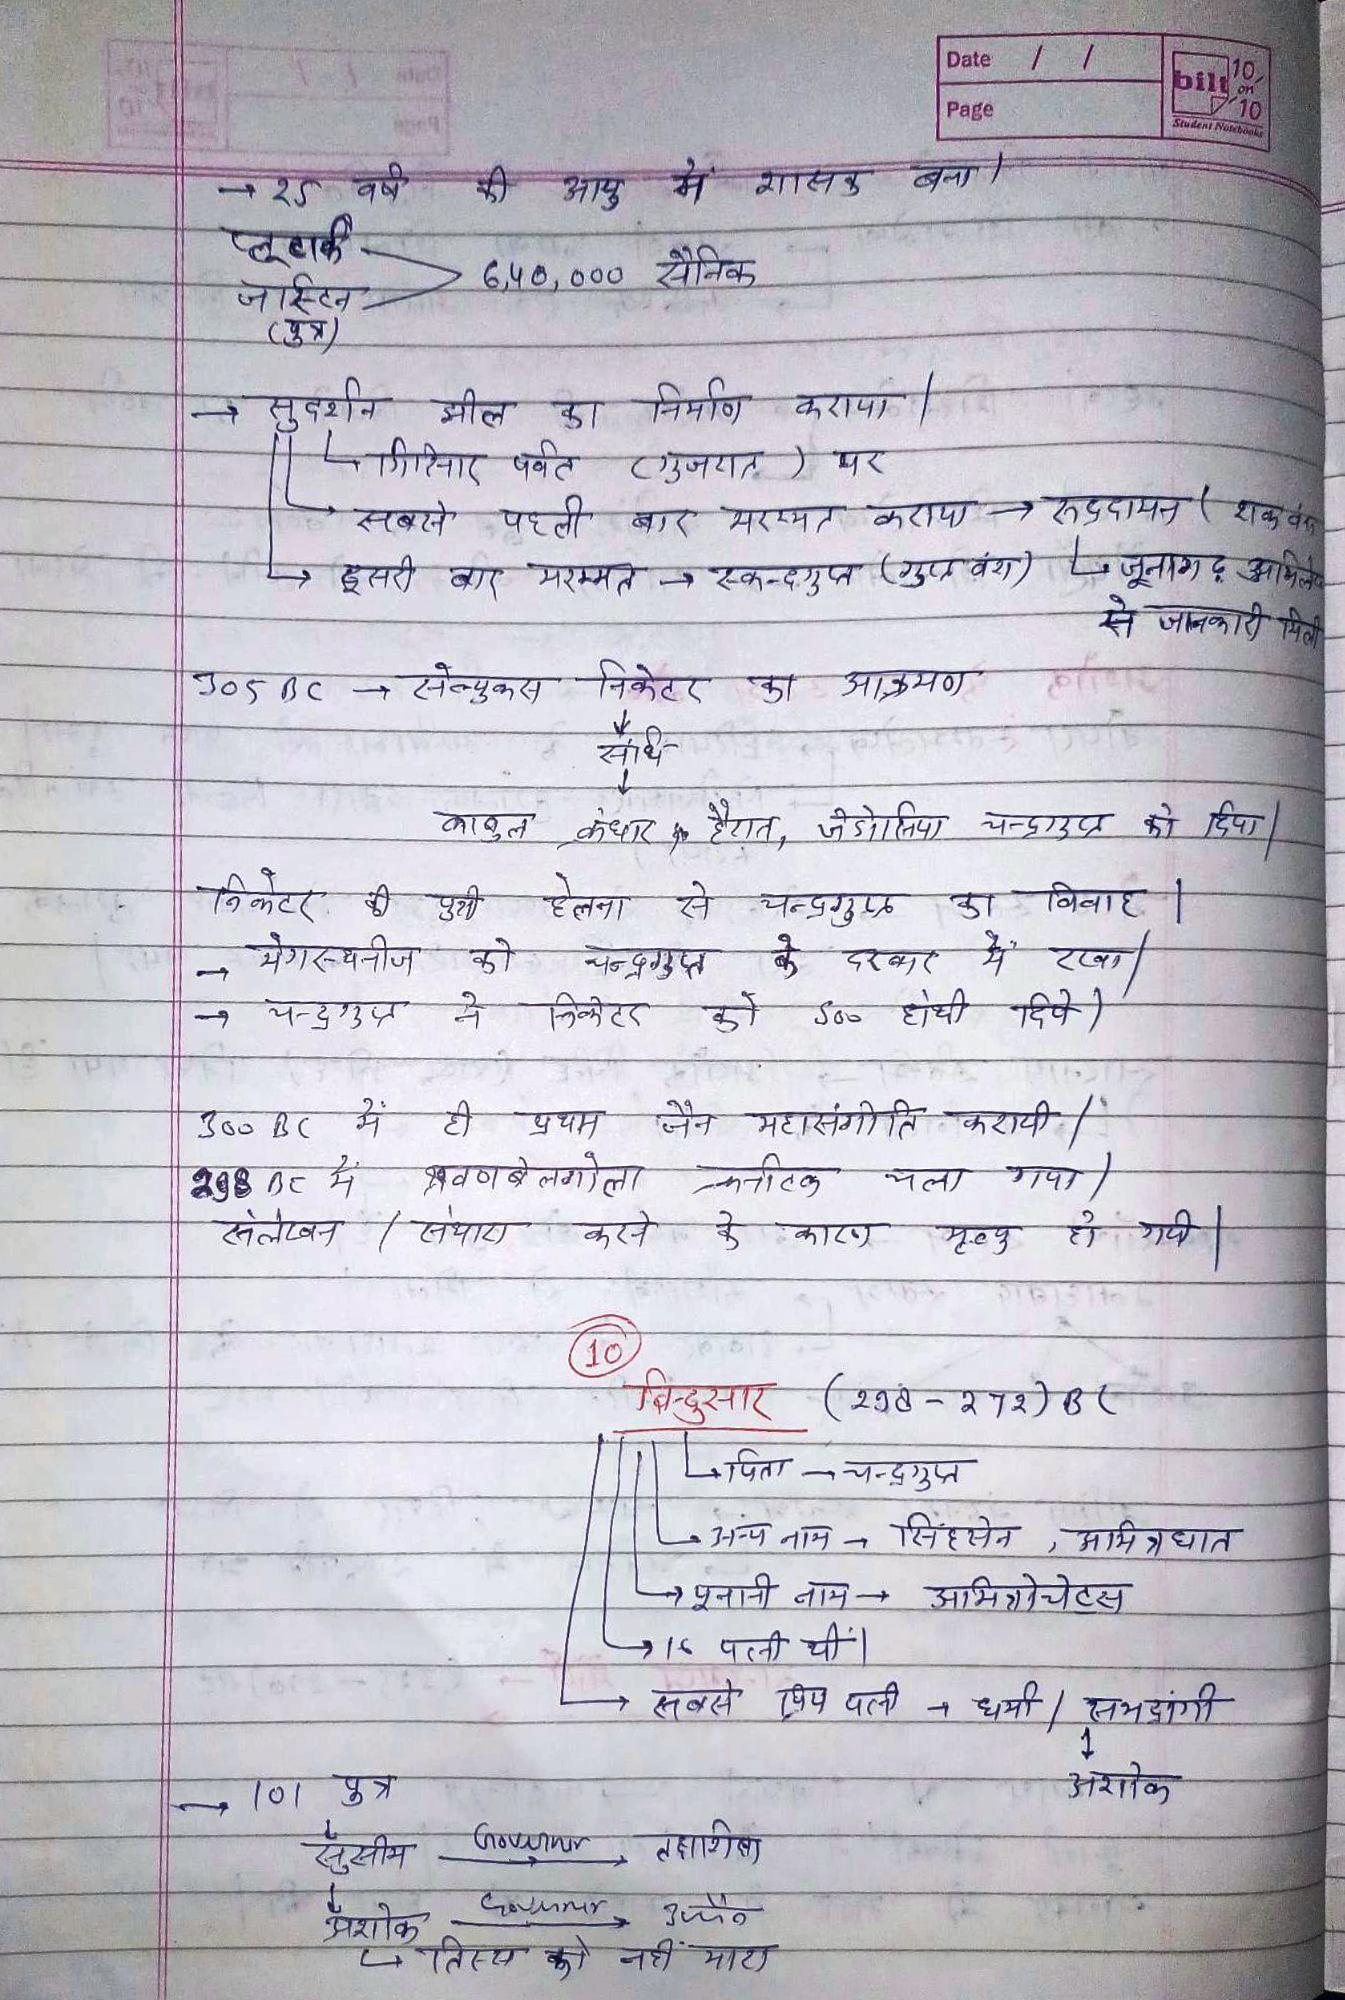 Date / /
Page
bilt 10 on 10
Student Notebooks
→ 25 वर्ष की आयु में शासक बना।
प्लूटार्क
6,40,000 सैनिक
जास्टिन
(पुत्र)
→ सुदर्शन झील का निर्माण कराया।
गिरिनार पर्वत (गुजरात) पर
सबसे पहली बार मरम्मत कराया → रुद्रदामन (शक वंश
→ दूसरी बार मरम्मत → स्कन्दगुप्त (गुप्त वंश) ↳ जूनागढ़ अभिलेख
से जानकारी मिली
305 BC → सेल्युकस निकेटर का आक्रमण
↓
संधि
↓
काबुल कंधार हैरात, जेडोसिया चन्द्रगुप्त को दिया।
निकेटर की पुत्री हेलना से चन्द्रगुप्त का विवाह।
→ मेगस्थनीज को चन्द्रगुप्त के दरबार में रखा।
→ चन्द्रगुप्त ने निकेटर को 500 हांथी दिये)
300 BC में ही प्रथम जैन महासंगीति करायी।
298 BC में श्रवणबेलगोला कर्नाटक चला गया।
संलेखन / संथारा करने के कारण मृत्यु हो गयी।
10
बिन्दुसार (298 - 272) BC
↳ पिता → चन्द्रगुप्त
→ अन्य नाम → सिंहसेन, अमित्रघात
→ यूनानी नाम → अमित्रोचेट्स
→ 16 पत्नी थीं।
→ सबसे प्रिय पत्नी → धर्मा / सुभद्रांगी
↓
→ 101 पुत्र
अशोक
↓
सुसीम Governor → तक्षशिला
↓
अशोक Governor → उज्जैन
↳ तिस्य को नहीं मारा